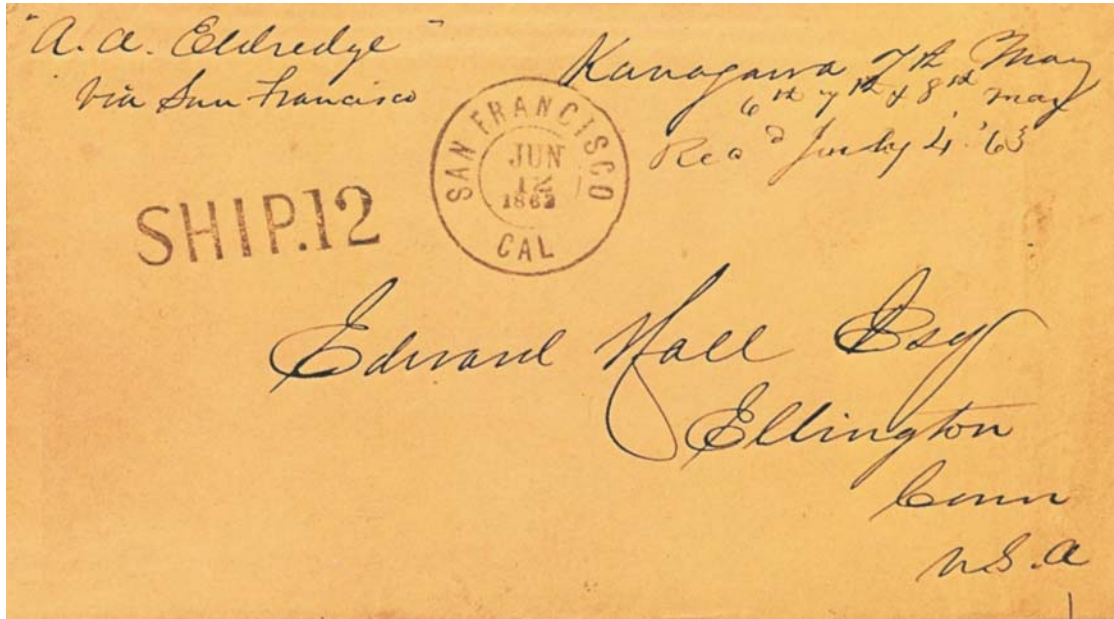 "A. A. Eldredge"
via San Francisco
Kanagawa 7th May
6th 7th & 8th May
Rec'd July 4 '63
SAN FRANCISCO
JUN
12
1863
CAL
SHIP.12
Edward Hall Esq
Ellington
Conn
U.S.A